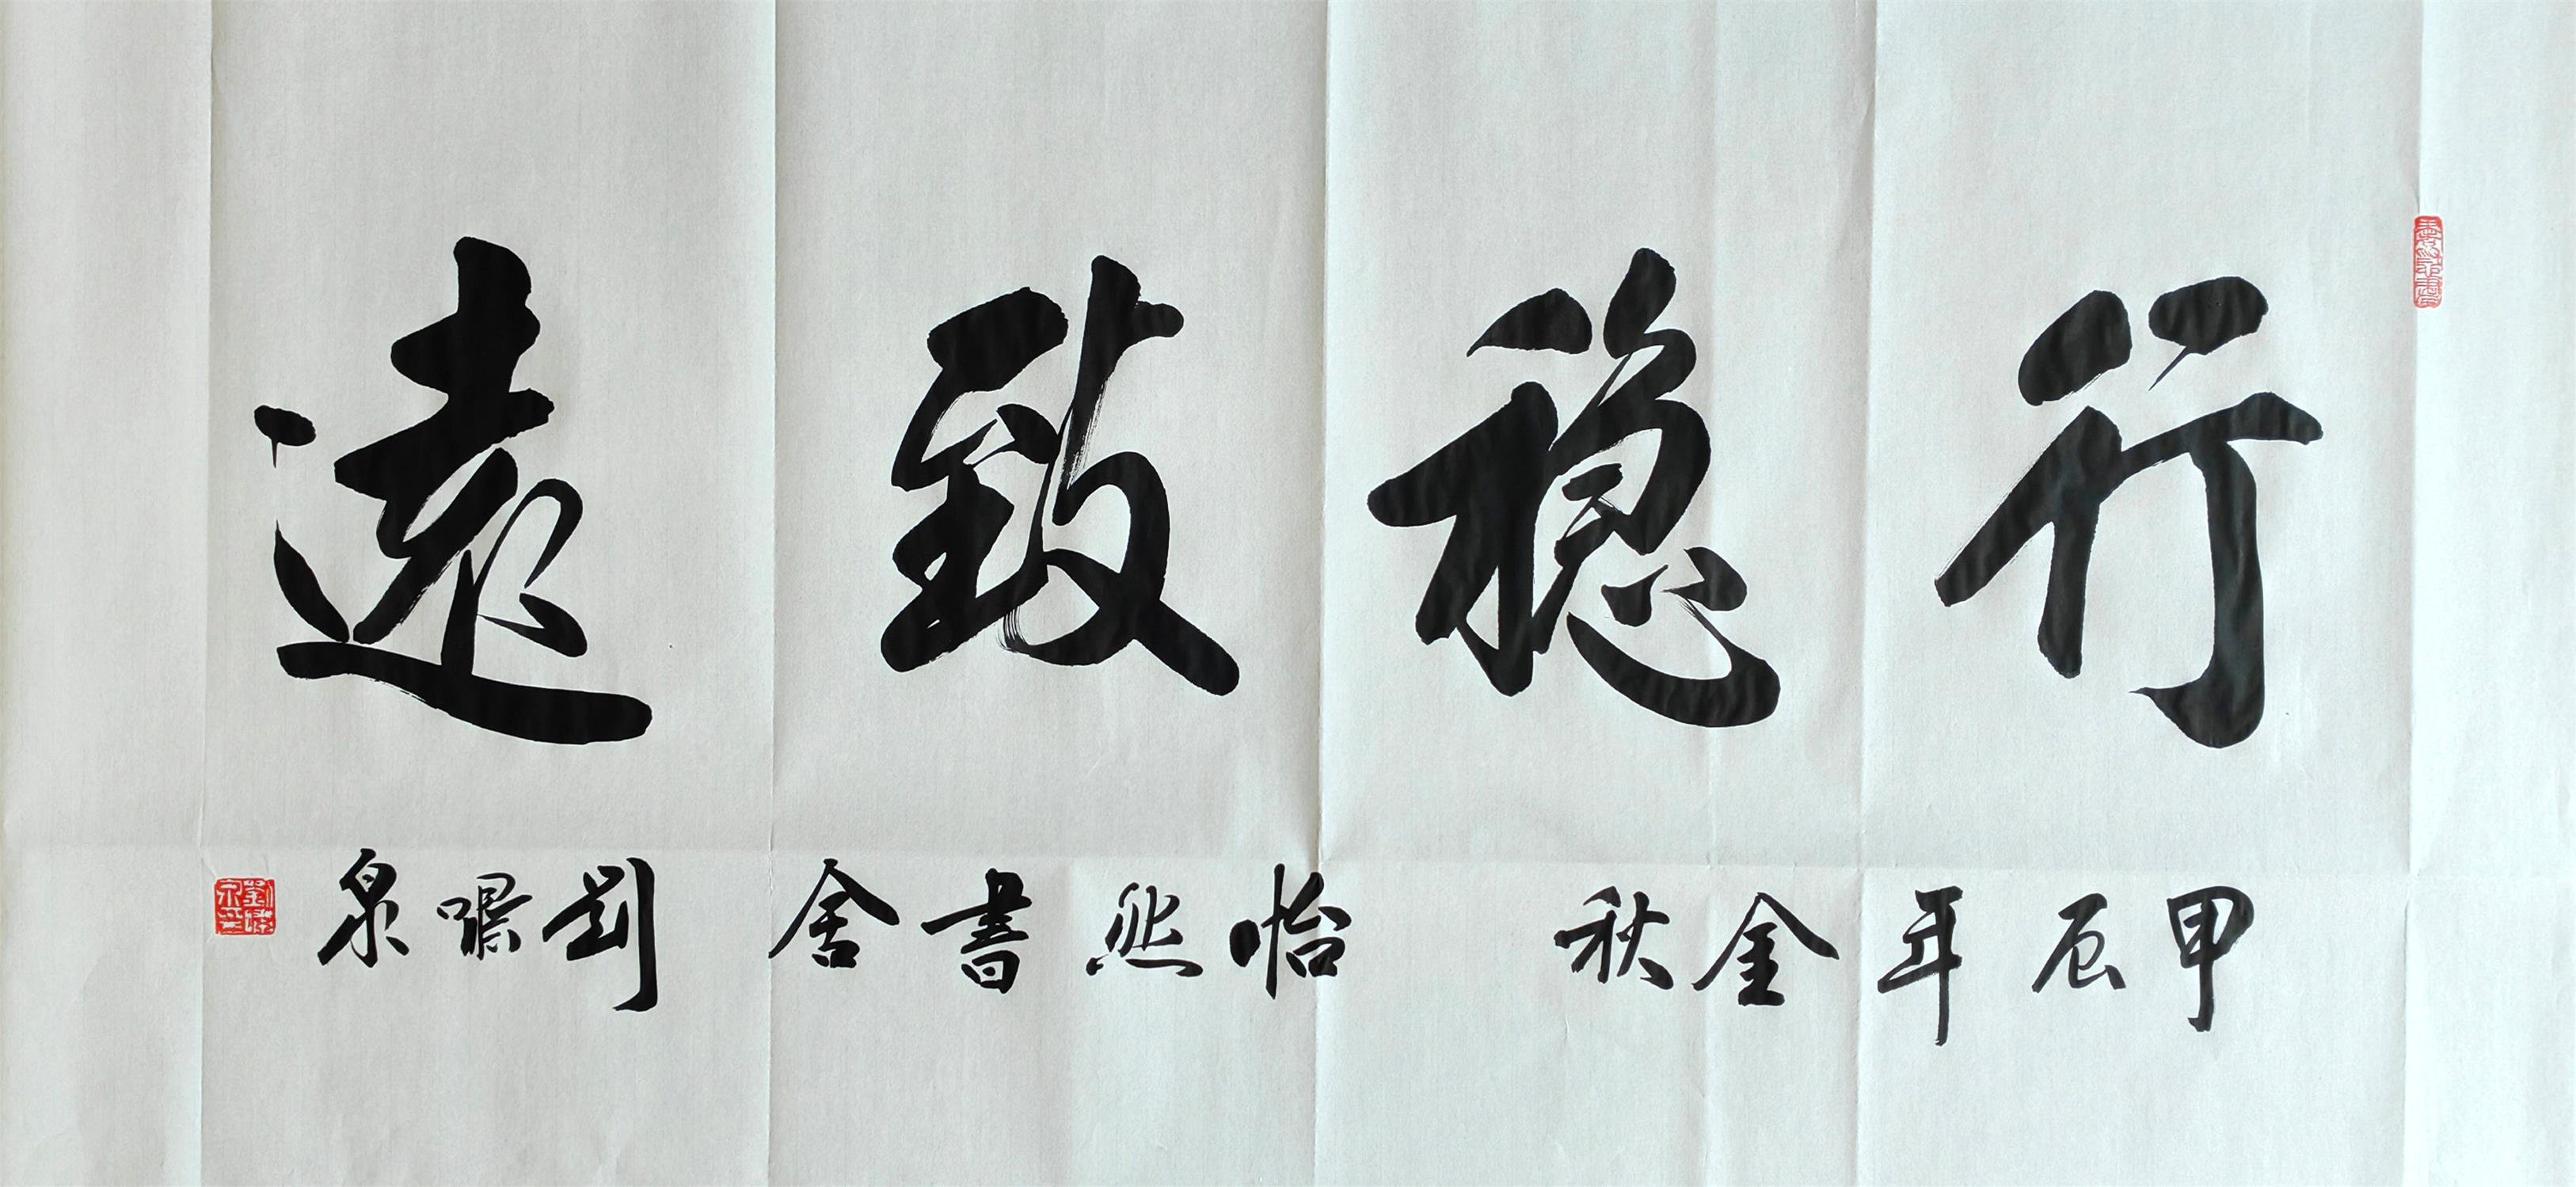 行稳致遠
甲辰年金秋 怡然書舍 劉曝泉